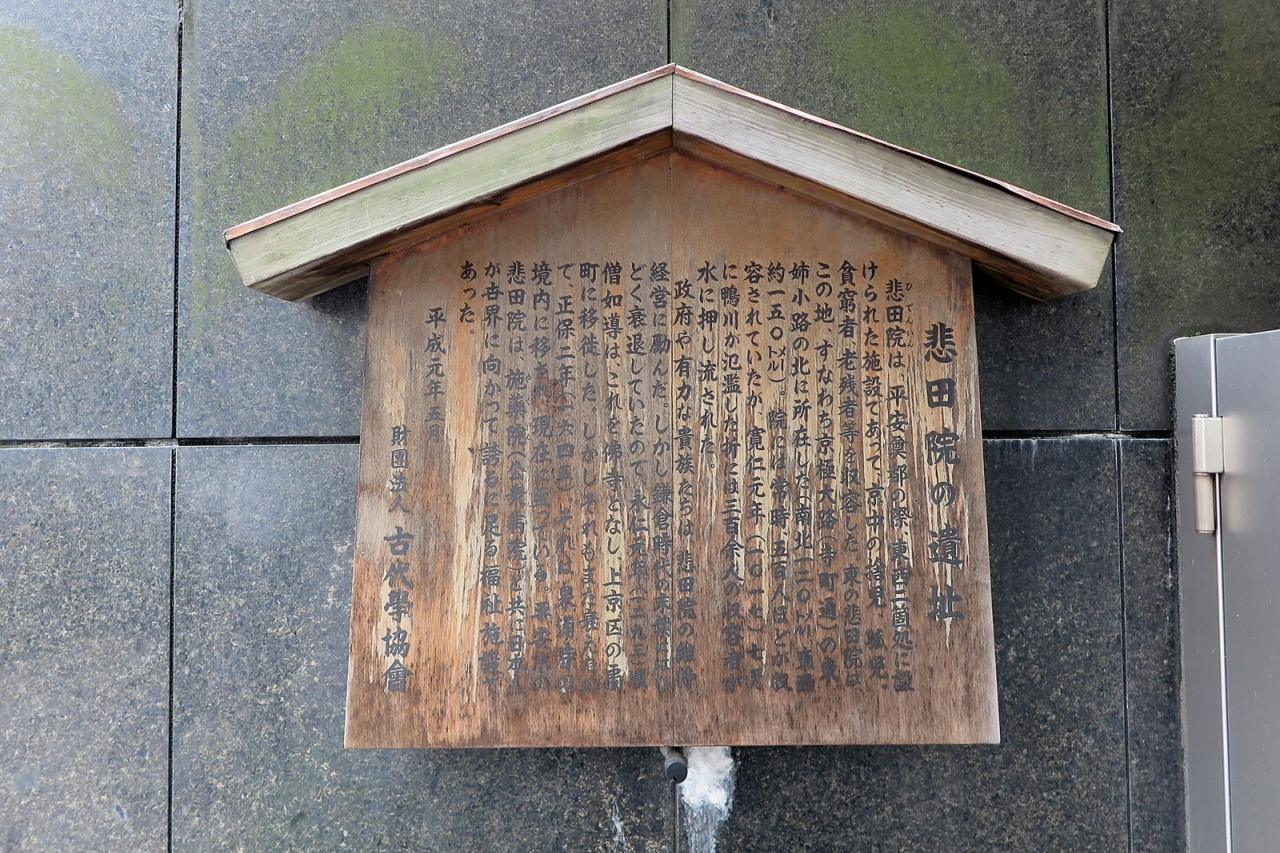 悲田院の遺址
悲田院は、平安奠都の際、東西二箇処に設
けられた施設であって、京中の捨児、孤児、
貧窮者、老残者等を収容した。東の悲田院は、
この地、すなわち京極大路(寺町通)の東、
姉小路の北に所在した(南北一二〇㍍、東西
約一五〇㍍)。院には常時五百人ほどが収
容されていたが、寛仁元年(一〇一七)七月
に鴨川が氾濫した折には三百余人の収容者が
水に押し流された。
政府や有力な貴族たちは、悲田院の維持
経営に励んだ。しかし鎌倉時代の末葉には
どく衰退していたので、永仁元年(一二九三)頃
僧如導は、これを佛寺となし、上京区の扇
町に移徙した。しかしそれもまた衰えたの
で、正保二年(一六四五)、それは泉涌寺の
境内に移され、現在に至っている。平安京の
悲田院は、施薬院(と共に日本人
が世界に向かって誇るに足る福祉施設で
あった。
平成元年五月
財團法人 古代學協會
ひでんいん